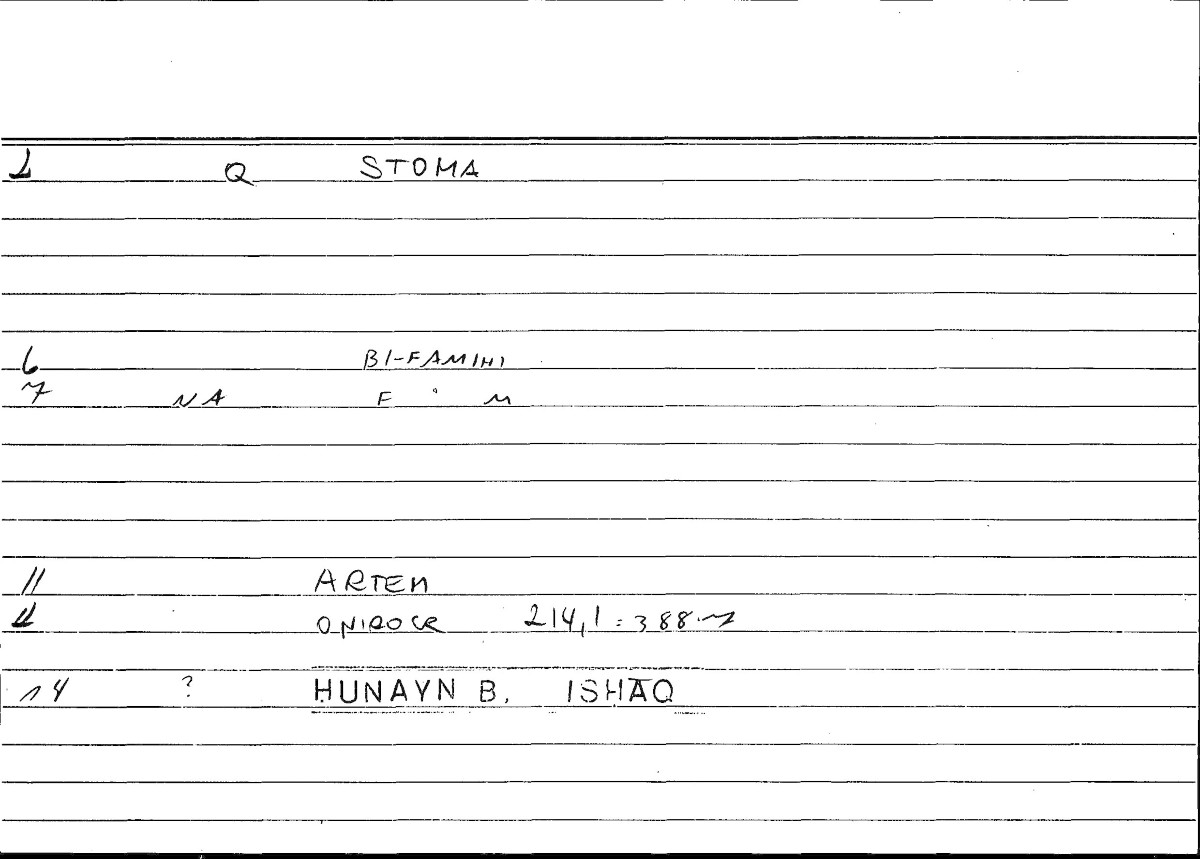 1 Q STOMA
6 BI-FAMIHI
7 NA F ° M
11 ARTEM
12 ONIROCR 214,1 : 388.
14 ? HUNAYN B. ISHAQ